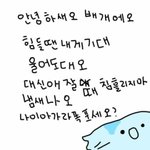 안녕하새오 배개에오
힘들땐 내게 기대
울어도대오
대신애 잘때 침흘리지마
냄새나오
나이아가라폭포세요?